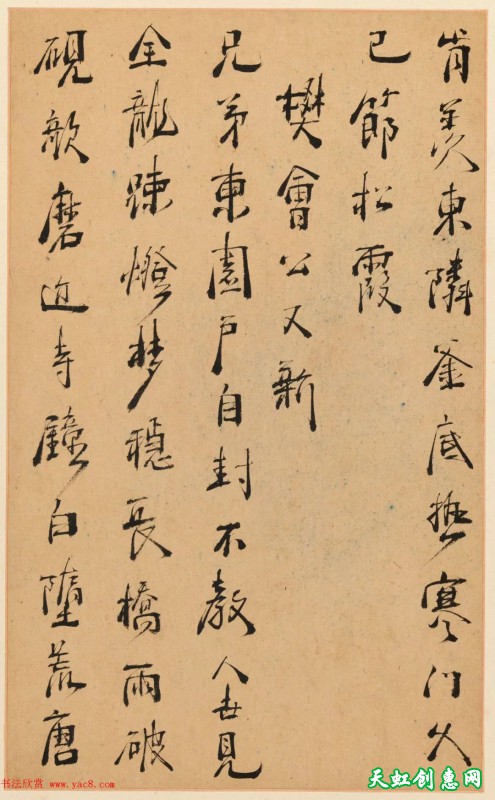 肯羨東隣釜底熱寒門久
已節松霞
樊會公又新
兄弟東園戶自封不教人世見
全龍踈燈夢穩長橋雨破
硯磨近寺鐘白墮荒唐
书法欣赏 www.yac8.com
天虹创惠网